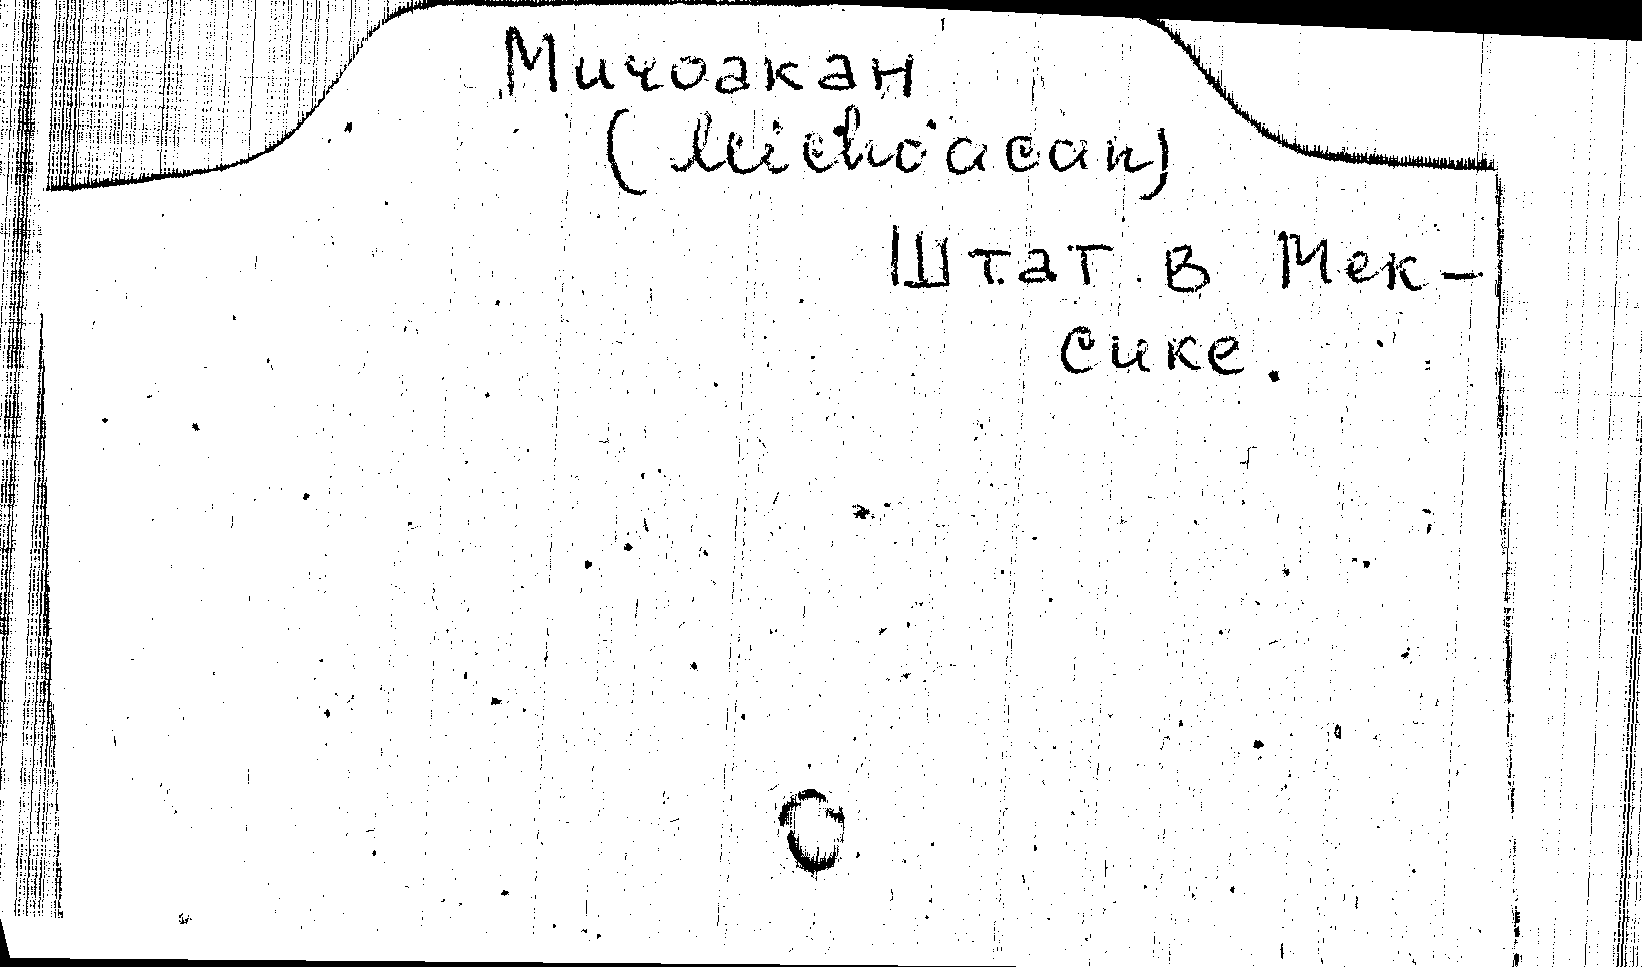 Мичоакан
(Michoacan)
Штат в Мек-
сике.